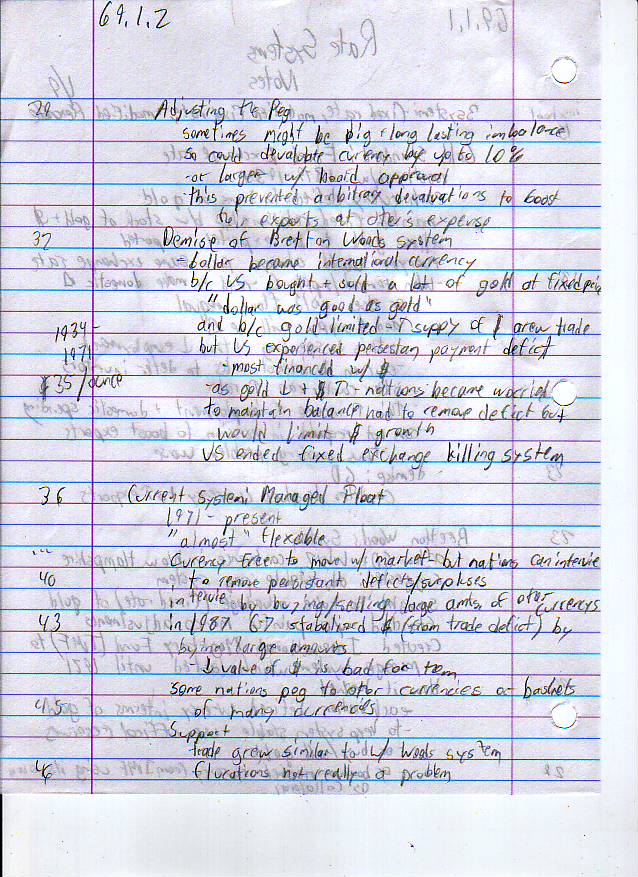 69.1.2
28 Adjusting the Peg
sometimes might be big + long lasting imbalance
so could devaluate currency by up to 10%
-or larger w/ board approval
-this prevented arbitrary devaluations to boost
their exports at other's expense
32 Demise of Bretton Woods system
-Dollar became international currency
b/c US bought + sold a lot of gold at fixed price
"dollar was good as gold"
1934- and b/c gold limited - ↑ supply of $ grew trade
1971 but US experienced persestan payment deficit
most financed w/ $
$35/ounce -as gold ↓ + $ ↑ - nations became worried
to maintain balance had to remove deficit but
would limit $ growth
US ended fixed exchange killing system
36 Current System: Managed Float
1971 - present
"almost" flexible
... Curency free to move w/ market - but nations can intervie
40 to remove persistant deficts/surpluses
intervie by buying/selling large amts. of other currencys
43 in 1987 G-7 stabalized $ (from trade deficit) by
buying large amounts
- ↓ value of $ is bad for them
some nations peg to other currencies or baskets
45 of many currencies
Support -
trade grew similar to w/ Woods system
46 flurations not really a problem